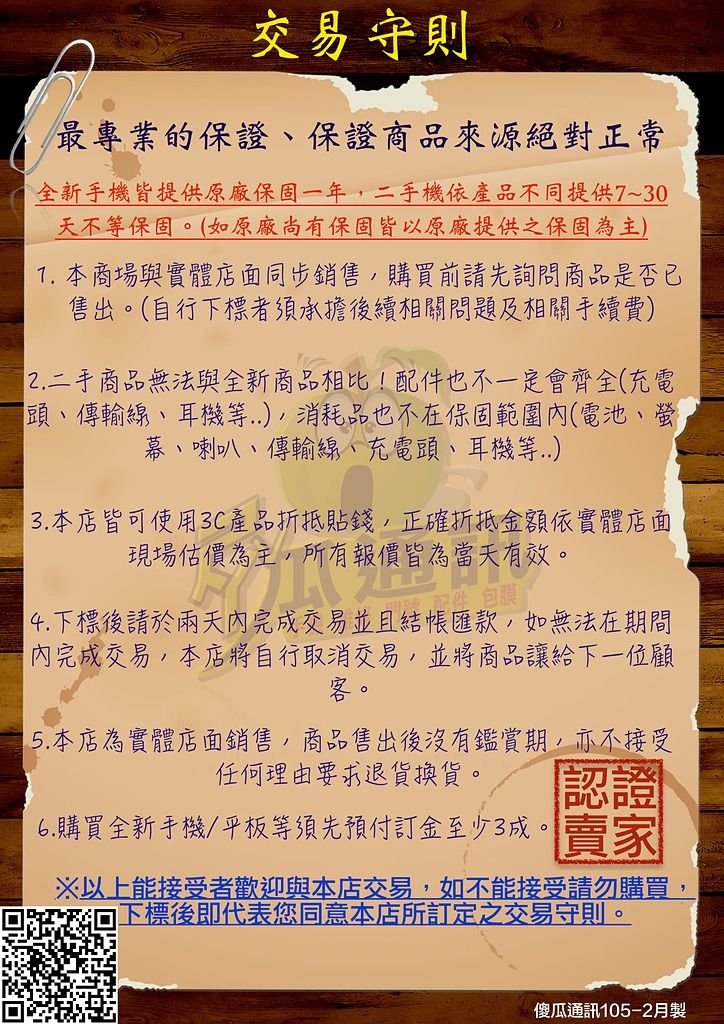 交易守則
最專業的保證、保證商品來源絕對正常
全新手機皆提供原廠保固一年，二手機依產品不同提供7~30
天不等保固。(如原廠尚有保固皆以原廠提供之保固為主)
1. 本商場與實體店面同步銷售，購買前請先詢問商品是否已
售出。(自行下標者須承擔後續相關問題及相關手續費)
2.二手商品無法與全新商品相比！配件也不一定會齊全(充電
頭、傳輸線、耳機等..)，消耗品也不在保固範圍內(電池、螢
幕、喇叭、傳輸線、充電頭、耳機等..)
3.本店皆可使用3C產品折抵貼錢，正確折抵金額依實體店面
現場估價為主，所有報價皆為當天有效。
4.下標後請於兩天內完成交易並且結帳匯款，如無法在期間
內完成交易，本店將自行取消交易，並將商品讓給下一位顧
客。
5.本店為實體店面銷售，商品售出後沒有鑑賞期，亦不接受
任何理由要求退貨換貨。
6.購買全新手機/平板等須先預付訂金至少3成。
認證
賣家
※以上能接受者歡迎與本店交易，如不能接受請勿購買，
下標後即代表您同意本店所訂定之交易守則。
瓜通訊
門號 配件 包膜
傻瓜通訊105-2月製